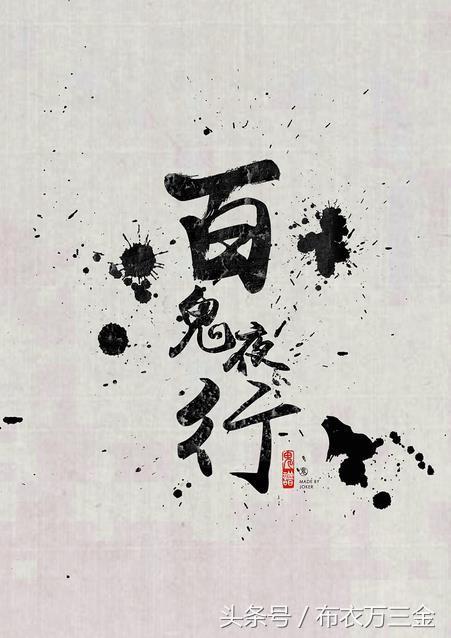 百
鬼
夜
行
MADE BY
JOKER
头条号 / 布衣万三金